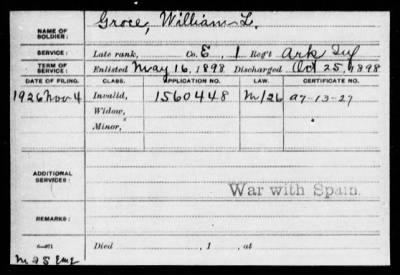 NAME OF SOLDIER: Groce, William L.
SERVICE: Late rank, Co. E, 1 Reg't Ark Inf
TERM OF SERVICE: Enlisted May 16, 1898 Discharged Oct 25, 1898
DATE OF FILING. CLASS. APPLICATION NO. LAW. CERTIFICATE NO.
1926 Nov 4 Invalid, 1560448 M/26 a7-13-27
Widow,
Minor,
ADDITIONAL SERVICES:
War with Spain.
REMARKS:
Died , 1 , at